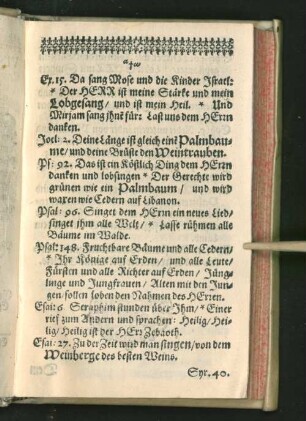 Ex. 15. Da sang Mose und die Kinder Israel:
* Der HERR ist meine Stärke und mein
Lobgesang / und ist mein Heil. * Und
Mirjam sang ihnẽ für: Last uns dem HErrn
danken.
Joel: 2. Deine Länge ist gleich einẽ Palmbau-
me / und deine Brüste den Weintrauben.
Ps: 92. Das ist ein Köstlich Ding dem HErrn
danken und lobsingen * Der Gerechte wird
grünen wie ein Palmbaum / und wird
waxen wie Cedern auf Libanon.
Psal: 96. Singet dem HErrn ein neues Lied /
singet ihm alle Welt / * Lasse rühmen alle
Bäume im Walde.
Psal: 148. Fruchtbare Bäume und alle Cedern /
* Ihr Könige auf Erden / und alle Leute /
Fürsten und alle Richter auf Erden / Jüng-
linge und Jungfrauen / Alten mit den Jun-
gen / sollen loben den Nahmen des HErren.
Esai: 6. Seraphim stunden über Ihm / * Einer
rief zum Andern und sprachen: Heilig / Hei-
lig / Heilig ist der HErr Zebaoth.
Esai: 27. Zu der Zeit wird man singen / von dem
Weinberge des besten Weins.
Syr. 40.